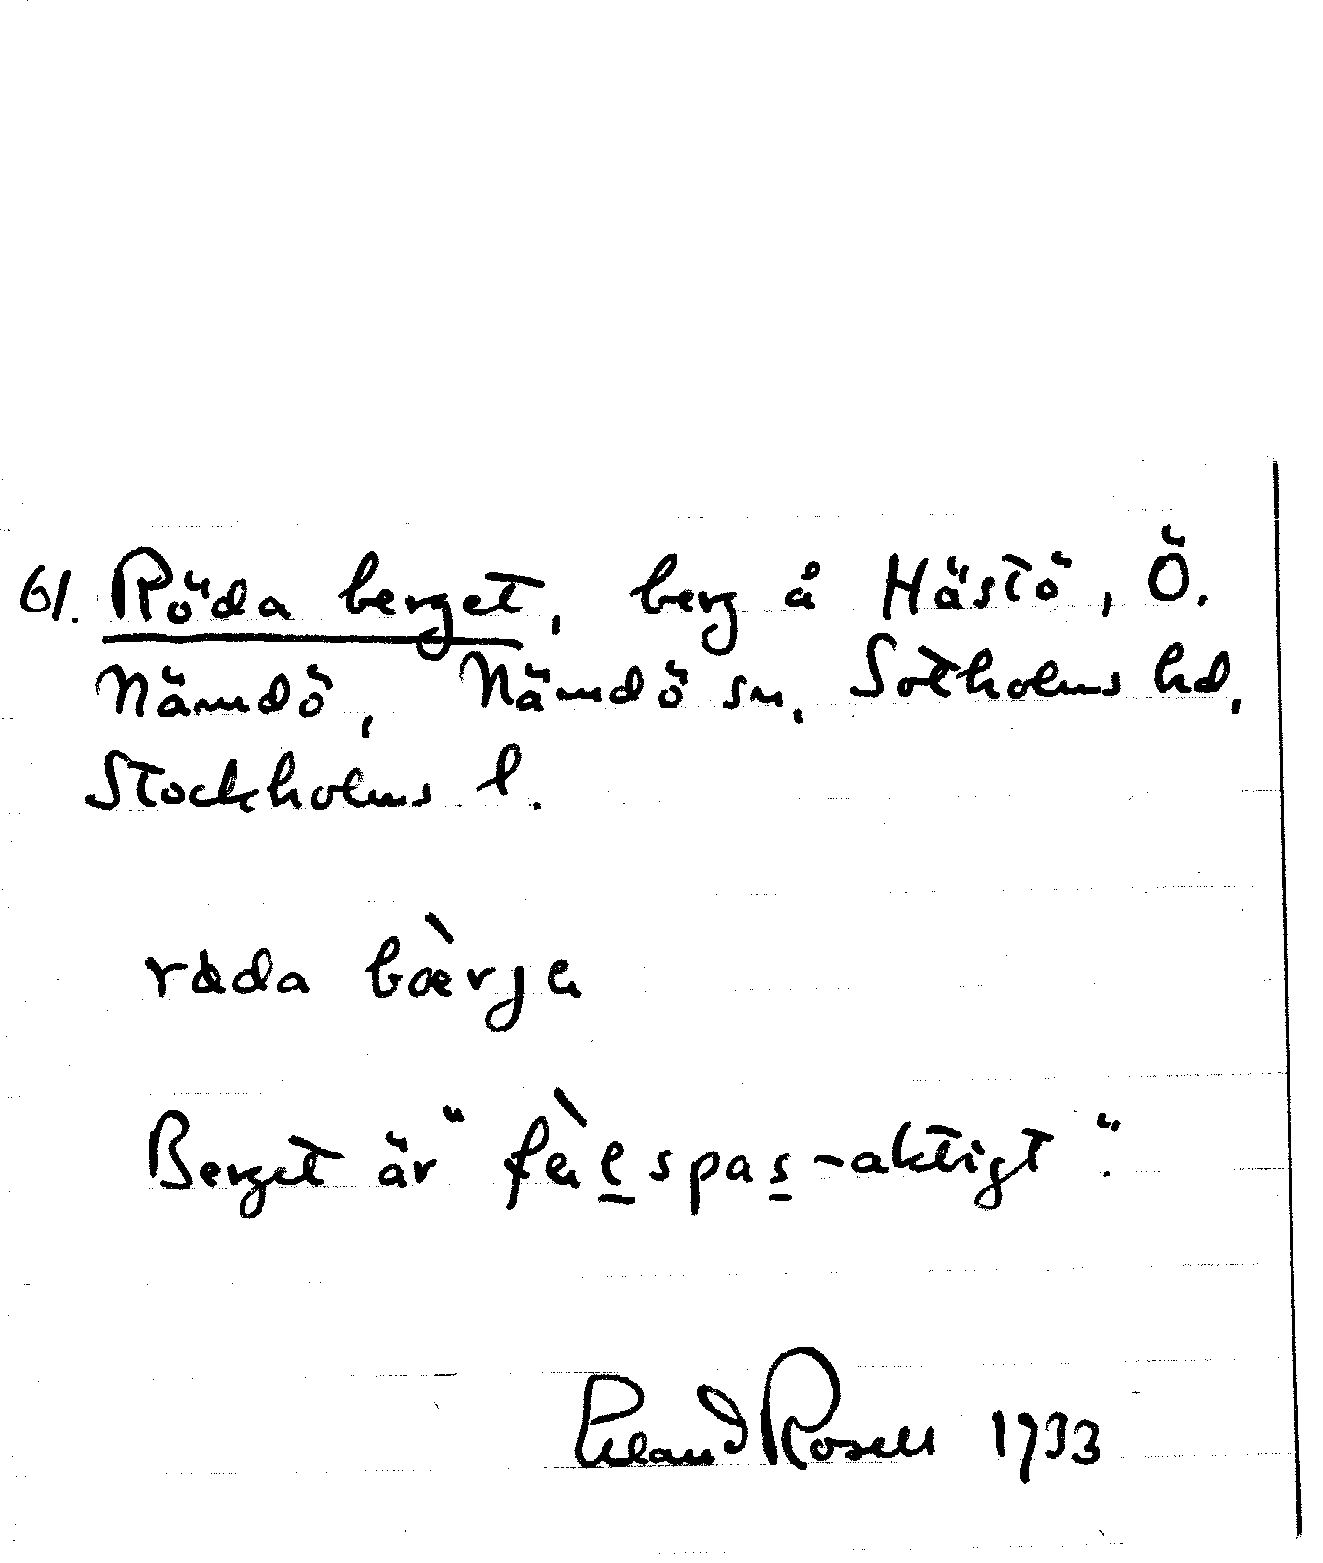 61. Röda berget, berg å Hästö, Ö.
Nämdö, Nämdö sn. Sotholms hd,
Stockholms l.
bærja
Berget är "fèlspas-aktigt".
Erland Rosell 1933